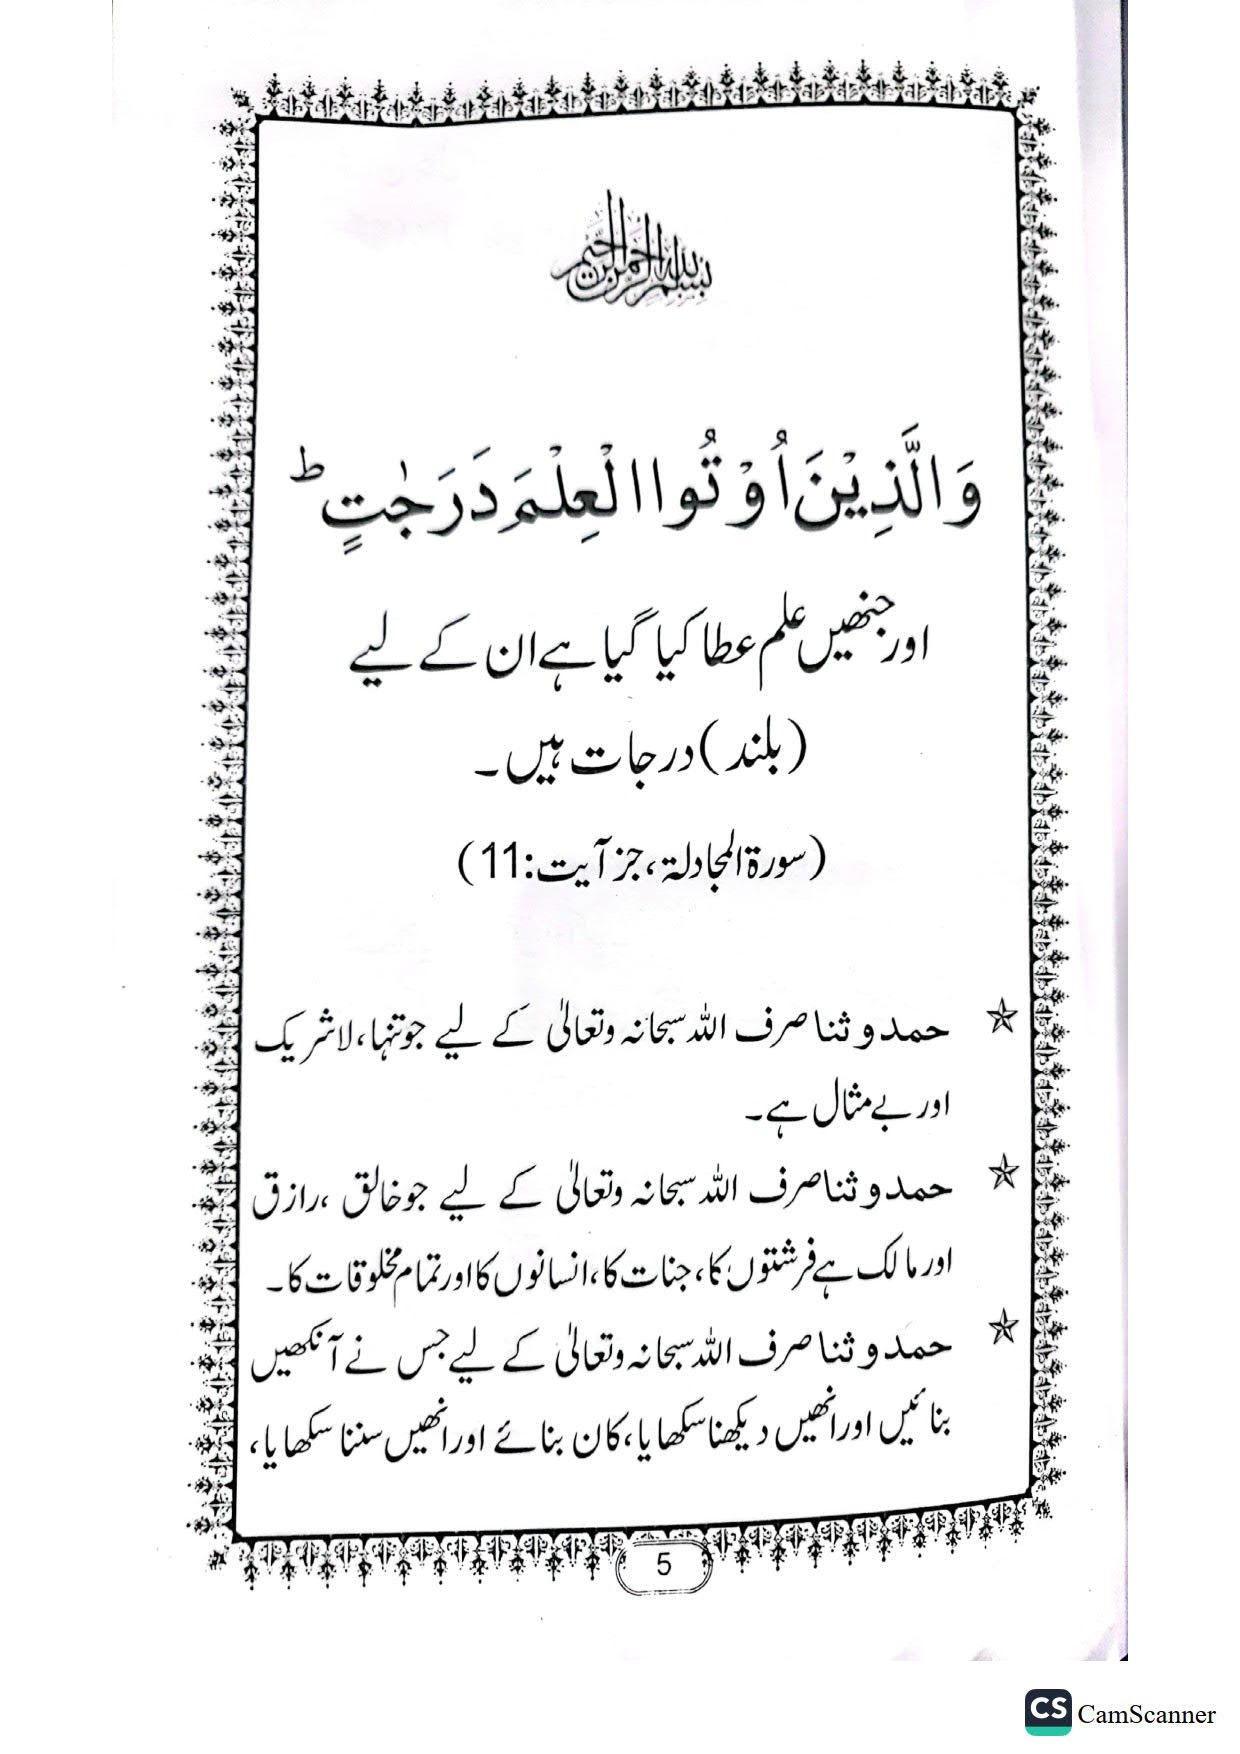 بسم الله الرحمن الرحيم
وَالَّذِيْنَ اُوْتُوا الْعِلْمَ دَرَجٰتٍ ؕ
اور جنھیں علم عطا کیا گیا ہے ان کے لیے
(بلند) درجات ہیں۔
(سورۃ المجادلۃ، جز آیت:11)
☆ حمد و ثنا صرف اللہ سبحانہ وتعالیٰ کے لیے جو تنہا، لاشریک
اور بے مثال ہے۔
☆ حمد و ثنا صرف اللہ سبحانہ وتعالیٰ کے لیے جو خالق ،رازق
اور مالک ہے فرشتوں کا، جنات کا، انسانوں کا اور تمام مخلوقات کا۔
☆ حمد و ثنا صرف اللہ سبحانہ وتعالیٰ کے لیے جس نے آنکھیں
بنائیں اور انھیں دیکھنا سکھایا، کان بنائے اور انھیں سننا سکھایا،
5
CS CamScanner